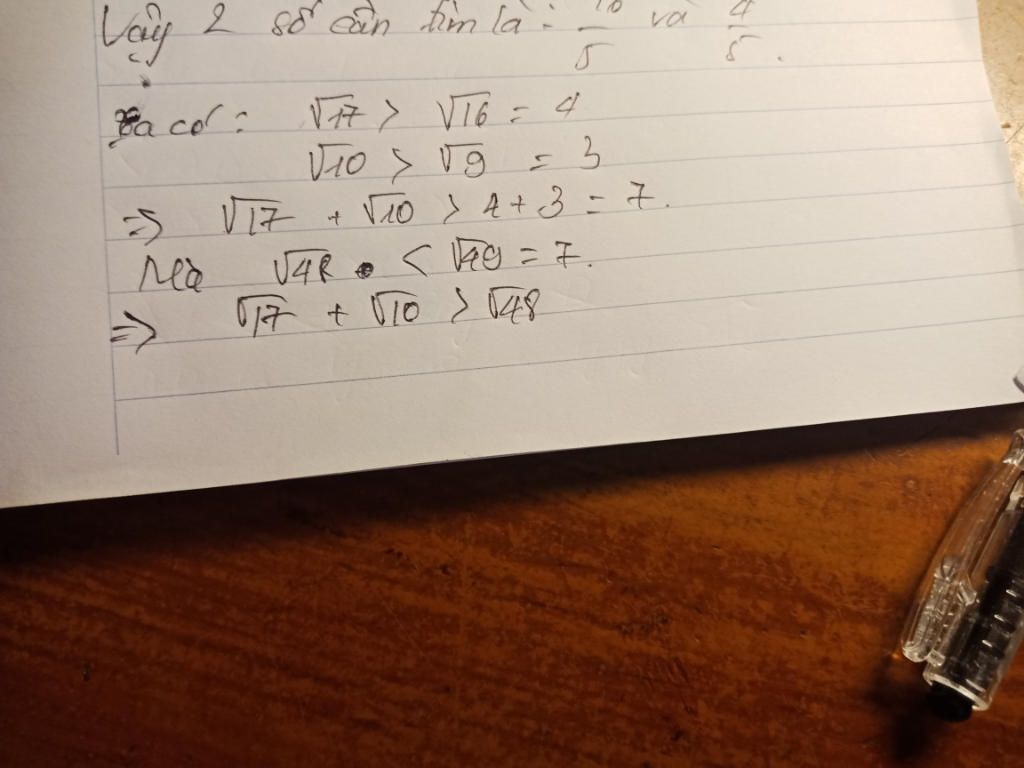 Vậy 2 số cần tìm là: 10/5 và 4/5.
Ta có: √17 > √16 = 4
√10 > √9 = 3
=> √17 + √10 > 4 + 3 = 7.
Mà √48 < √49 = 7.
=> √17 + √10 > √48